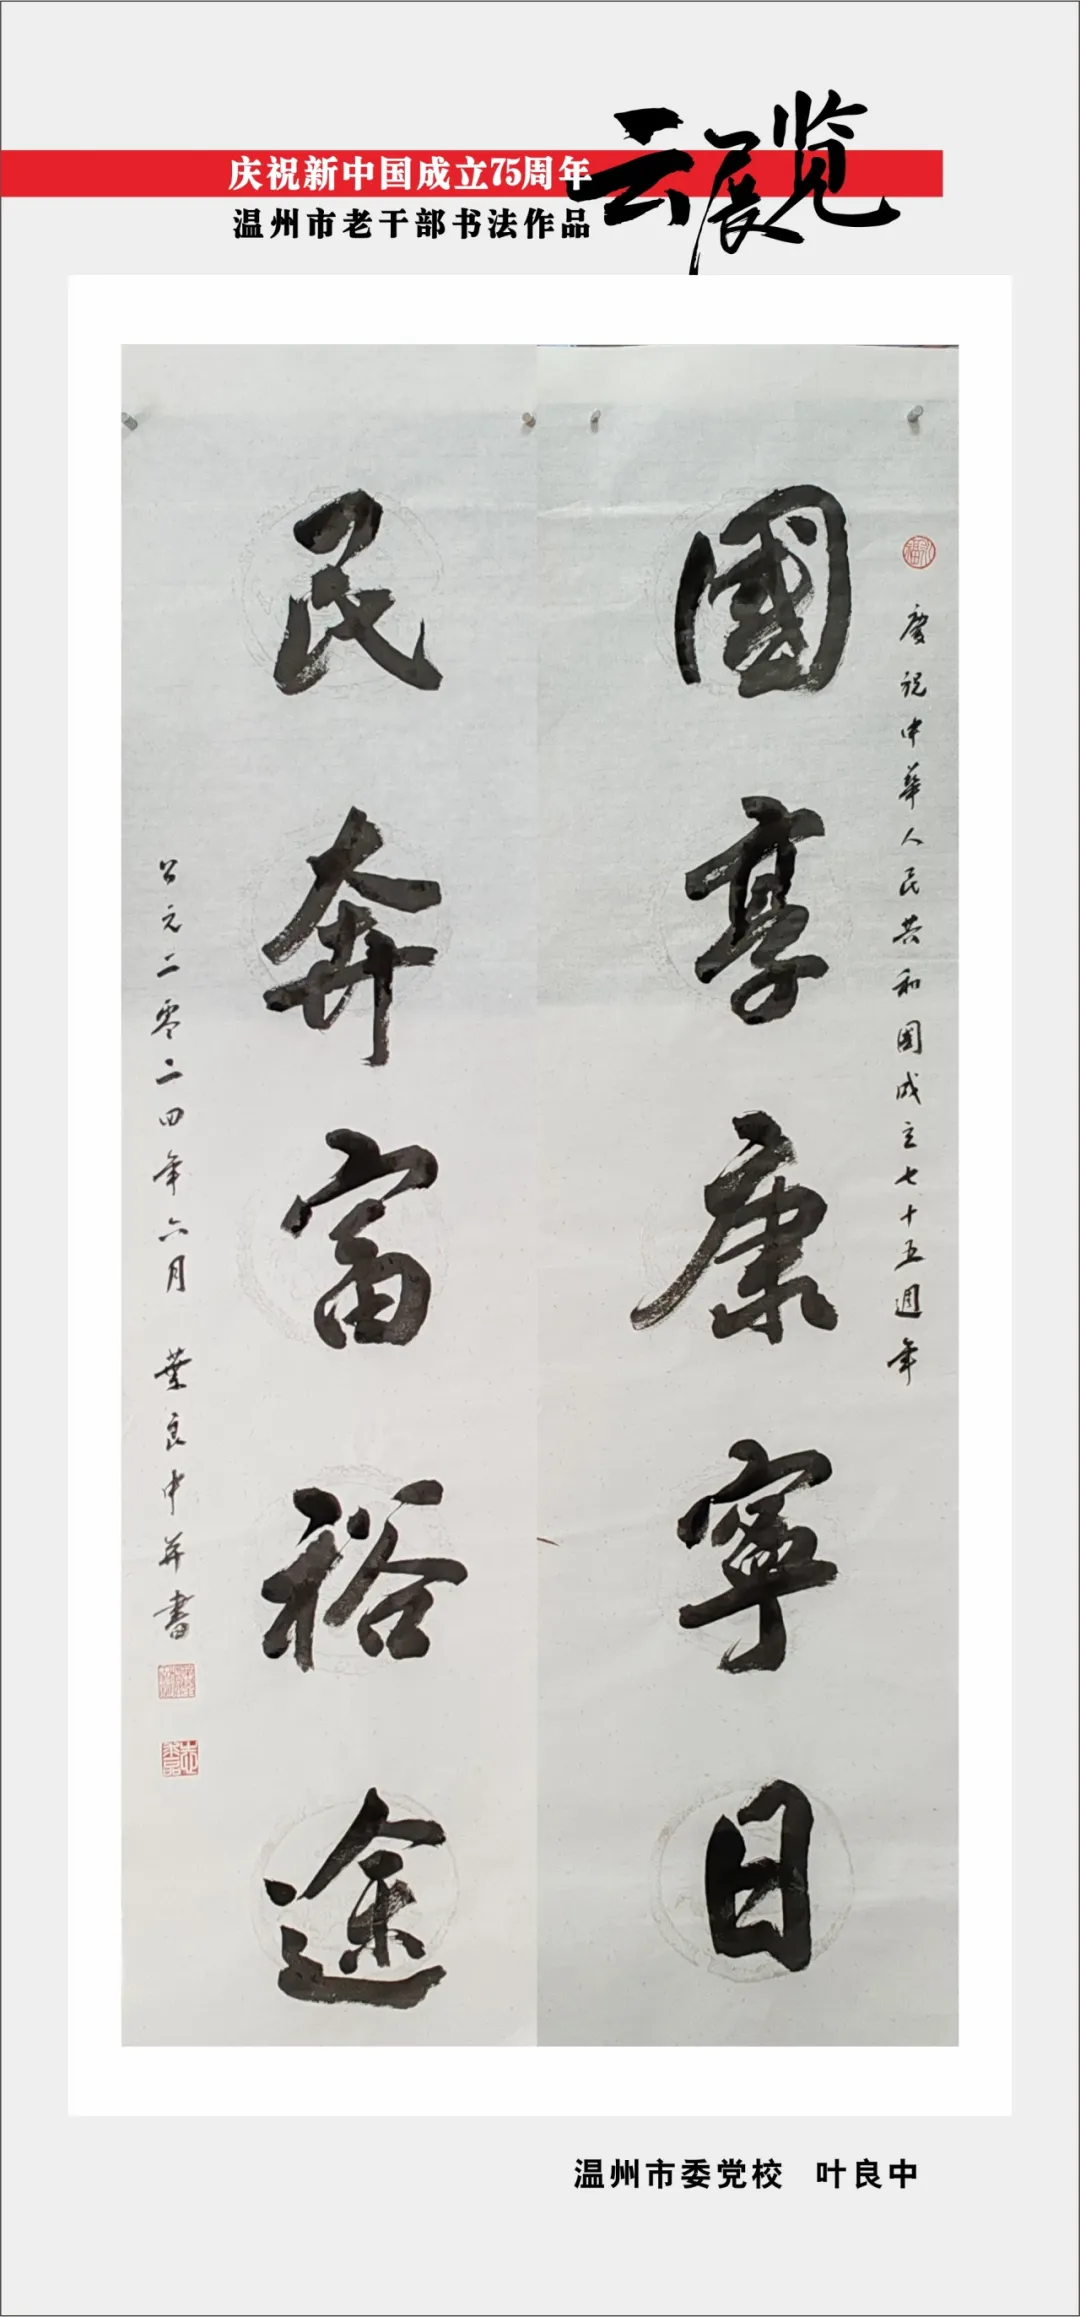 庆祝新中国成立75周年
温州市老干部书法作品
云展览
慶祝中華人民共和國成立七十五週年
國享康寧日
民奔富裕途
公元二零二四年六月 葉良中并書
温州市委党校 叶良中